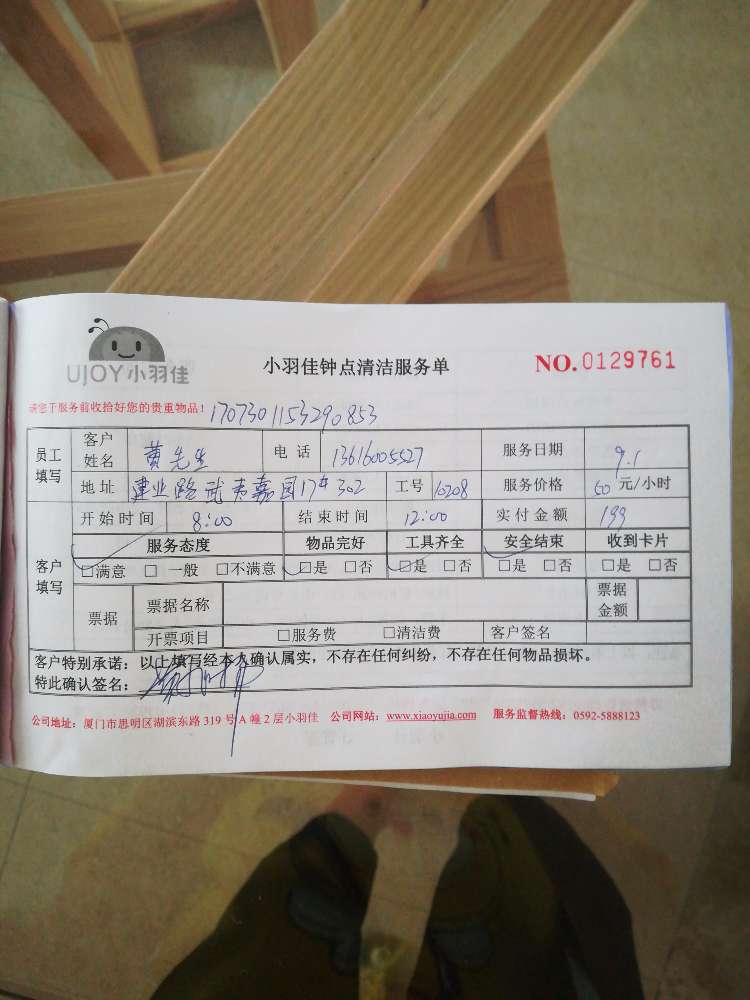 UJOY小羽佳
小羽佳钟点清洁服务单
NO.0129761
请您于服务前收拾好您的贵重物品!
1707301153290853
员工填写 客户姓名 黄先生 电话 13616005527 服务日期 9.1
地址 建业路武夷嘉园17# 302 工号 10208 服务价格 50 元/小时
客户填写 开始时间 8:00 结束时间 12:00 实付金额 199
服务态度 物品完好 工具齐全 安全结束 收到卡片
□满意 □一般 □不满意 □是 □否 □是 □否 □是 □否 □是 □否
票据 票据名称 票据金额
开票项目 □服务费 □清洁费 客户签名
客户特别承诺:以上填写经本人确认属实,不存在任何纠纷,不存在任何物品损坏。
特此确认签名:
公司地址:厦门市思明区湖滨东路 319 号 A 幢 2 层小羽佳 公司网站:www.xiaoyujia.com 服务监督热线:0592-5888123